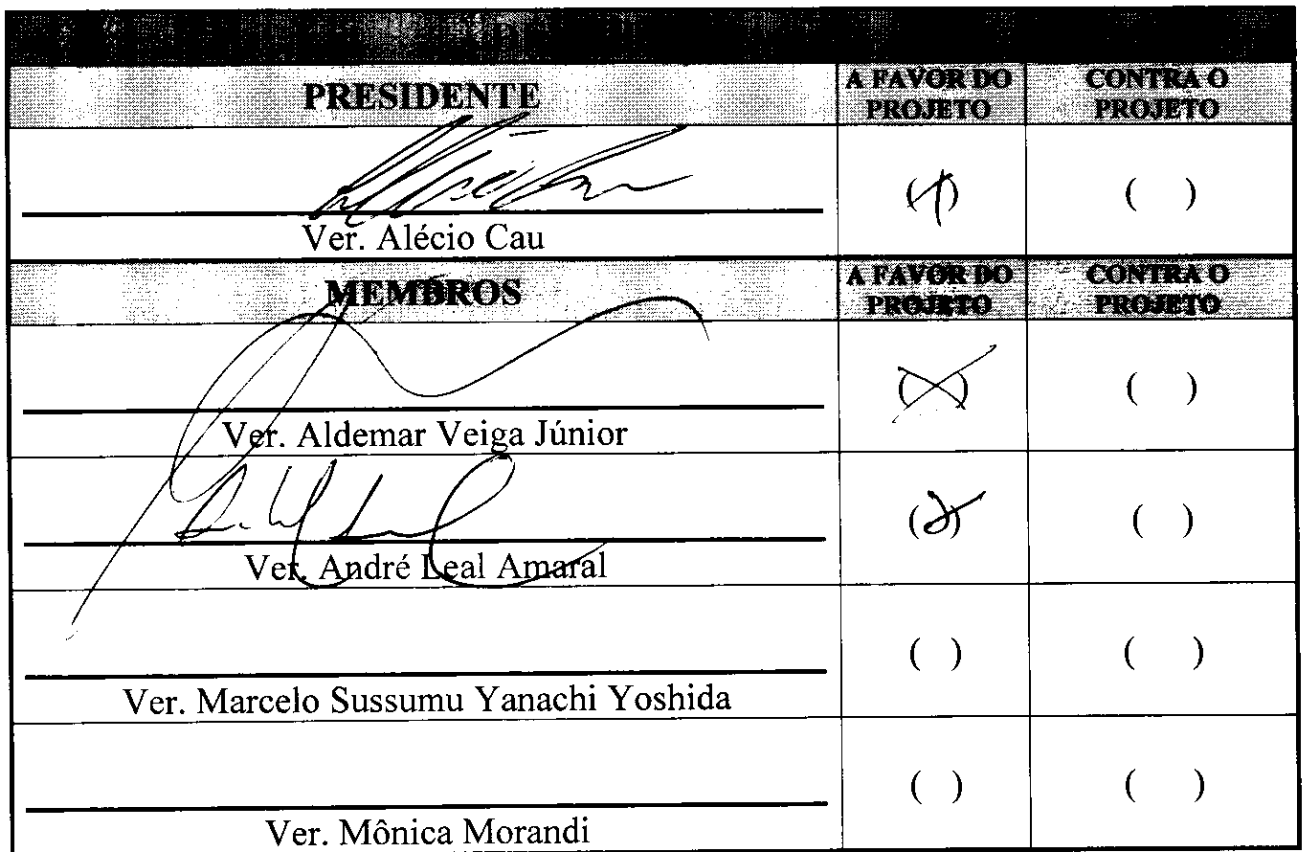 PRESIDENTE
A FAVOR DO PROJETO
CONTRA O PROJETO
( ) ( )
Ver. Alécio Cau
MEMBROS
A FAVOR DO PROJETO
CONTRA O PROJETO
(X) ( )
Ver. Aldemar Veiga Júnior
( ) ( )
Ver. André Leal Amaral
( ) ( )
Ver. Marcelo Sussumu Yanachi Yoshida
( ) ( )
Ver. Mônica Morandi